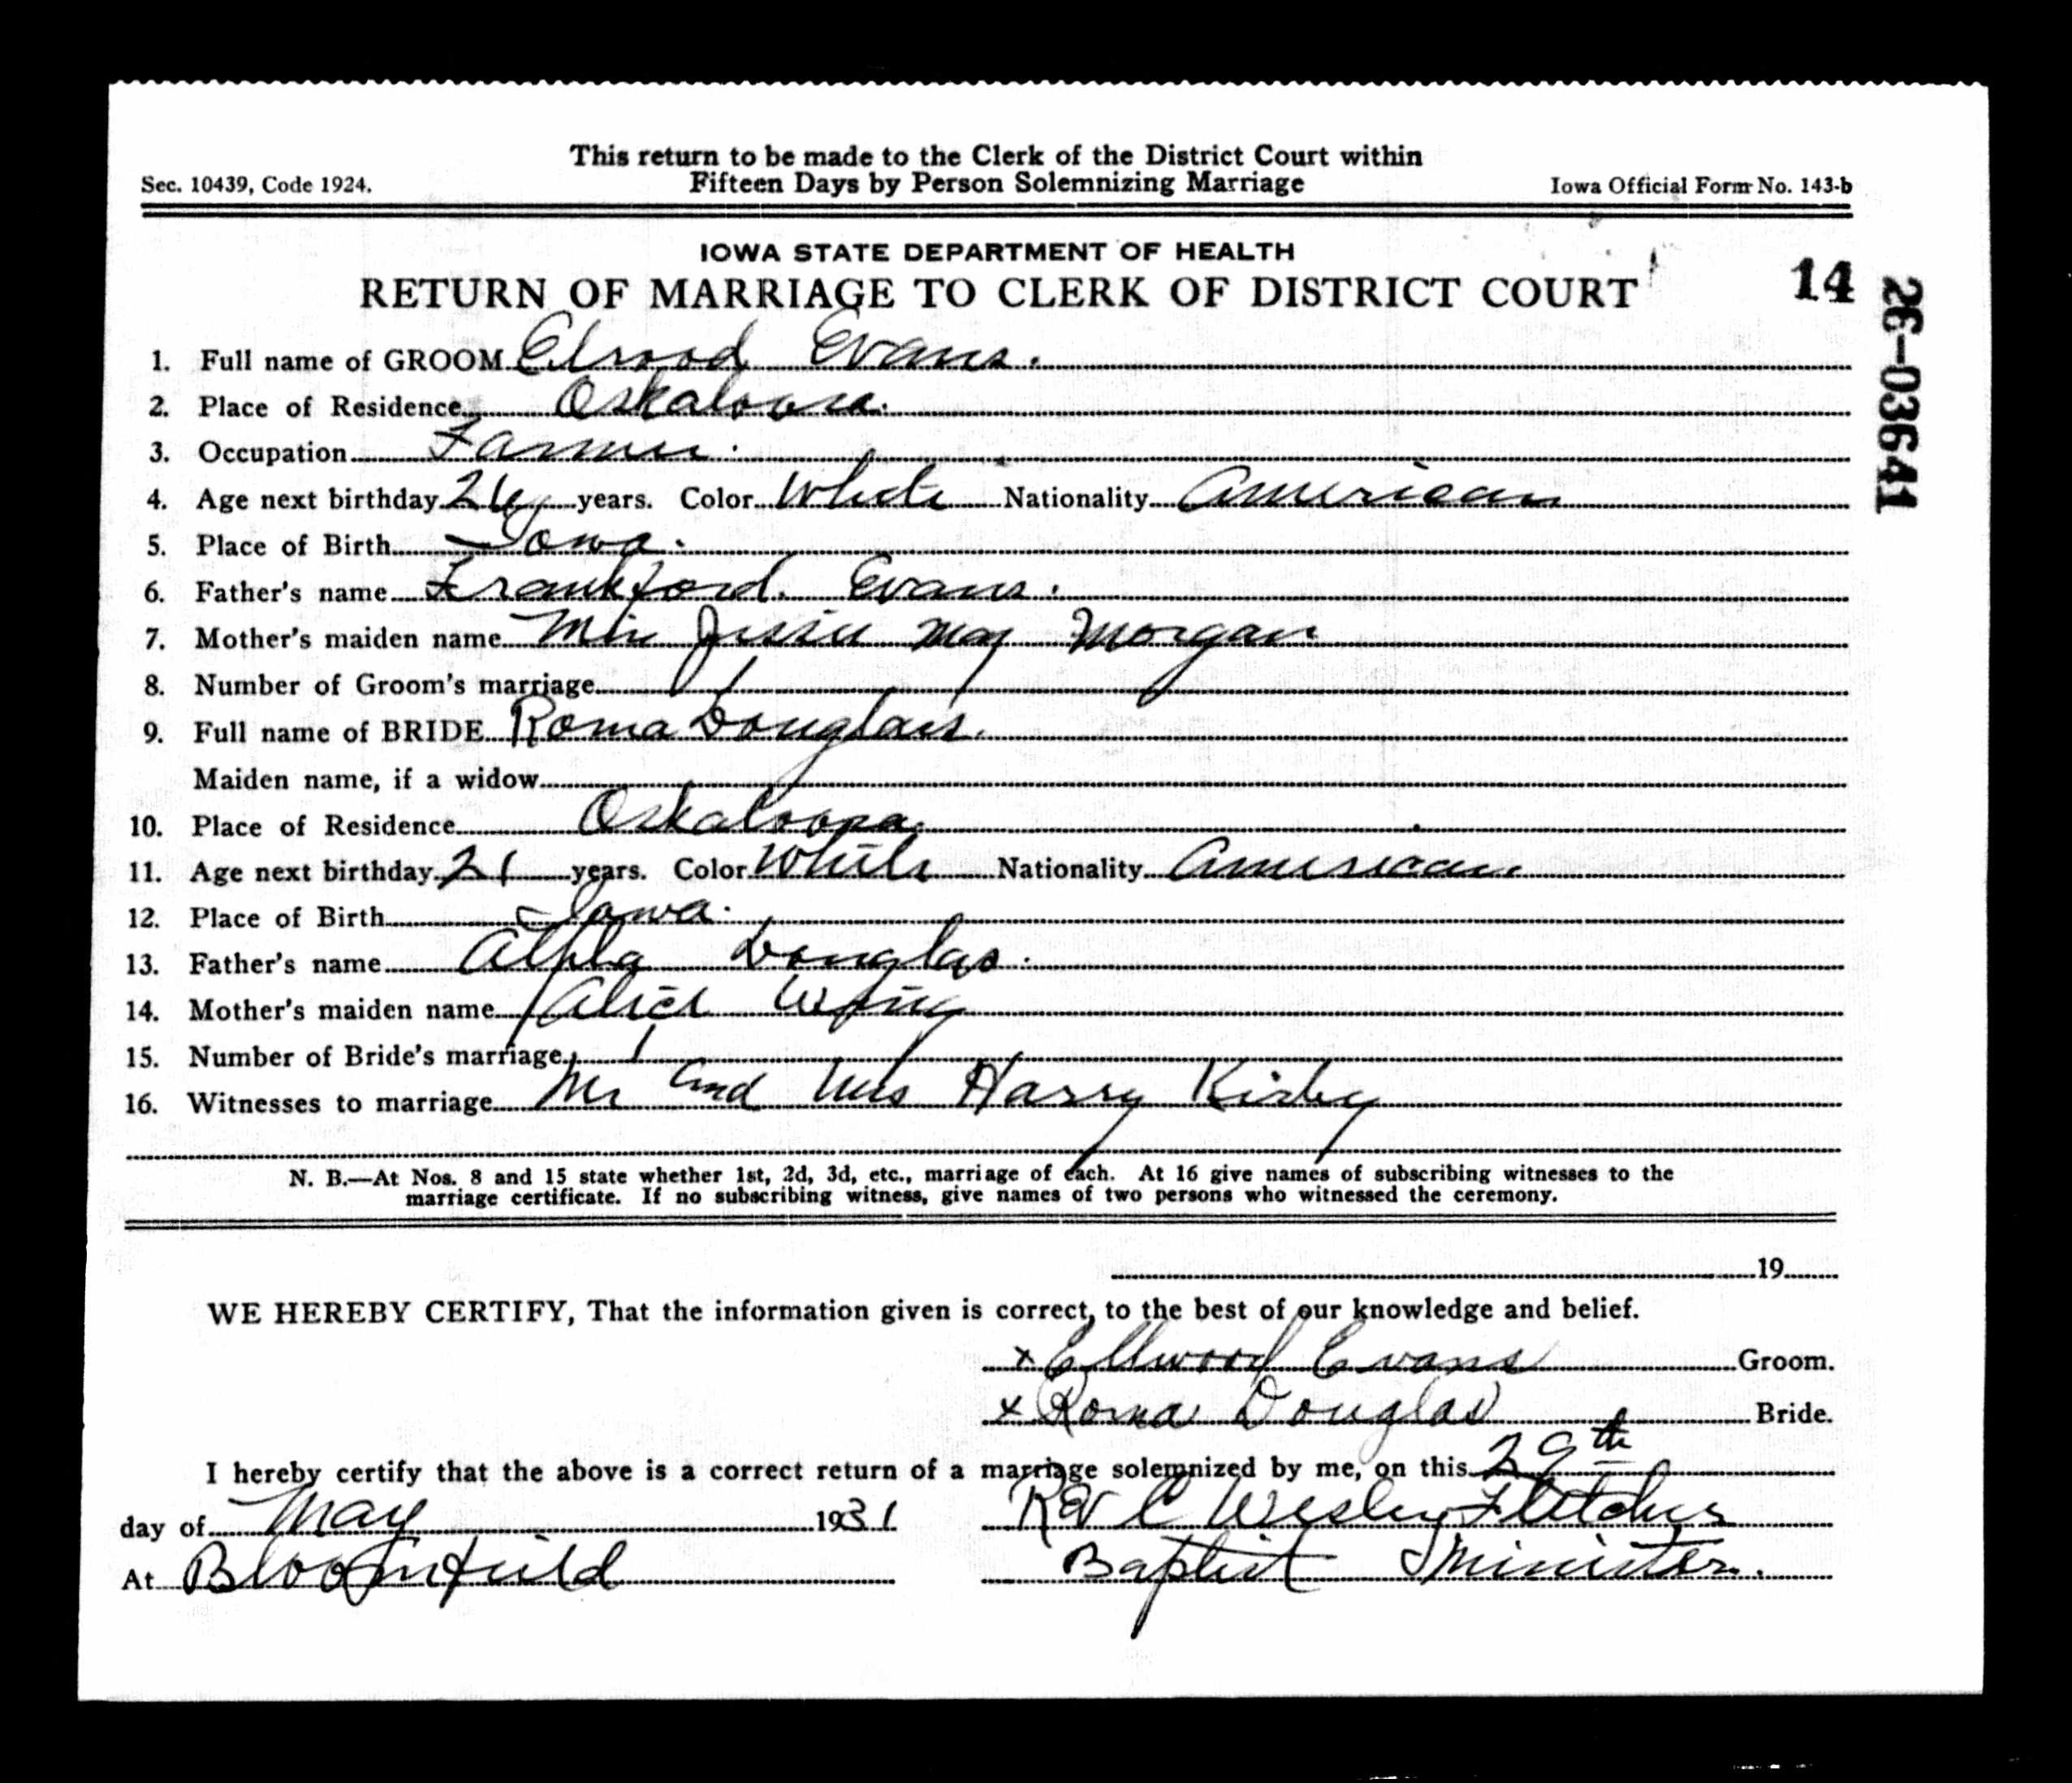 This return to be made to the Clerk of the District Court within
Sec. 10439, Code 1924. Fifteen Days by Person Solemnizing Marriage Iowa Official Form No. 143-b
IOWA STATE DEPARTMENT OF HEALTH
RETURN OF MARRIAGE TO CLERK OF DISTRICT COURT 14
26-03641
1. Full name of GROOM Elwood Evans.
2. Place of Residence Oskaloosa.
3. Occupation Farmer.
4. Age next birthday 26 years. Color White Nationality American
5. Place of Birth Iowa.
6. Father's name Frankford Evans.
7. Mother's maiden name Jessie May Morgan
8. Number of Groom's marriage 1
9. Full name of BRIDE Roma Douglass.
Maiden name, if a widow
10. Place of Residence Oskaloosa.
11. Age next birthday 21 years. Color White Nationality American
12. Place of Birth Iowa.
13. Father's name Alpha Douglas.
14. Mother's maiden name Alice
15. Number of Bride's marriage 1
16. Witnesses to marriage Mr and Mrs Harry Kirby
N. B.—At Nos. 8 and 15 state whether 1st, 2d, 3d, etc., marriage of each. At 16 give names of subscribing witnesses to the
marriage certificate. If no subscribing witness, give names of two persons who witnessed the ceremony.
19
WE HEREBY CERTIFY, That the information given is correct, to the best of our knowledge and belief.
x Ellwood Evans Groom.
x Roma Douglas Bride.
I hereby certify that the above is a correct return of a marriage solemnized by me, on this 29th
day of May 1931 Rev C Wesley Fletcher
At Bloomfield Baptist Minister.